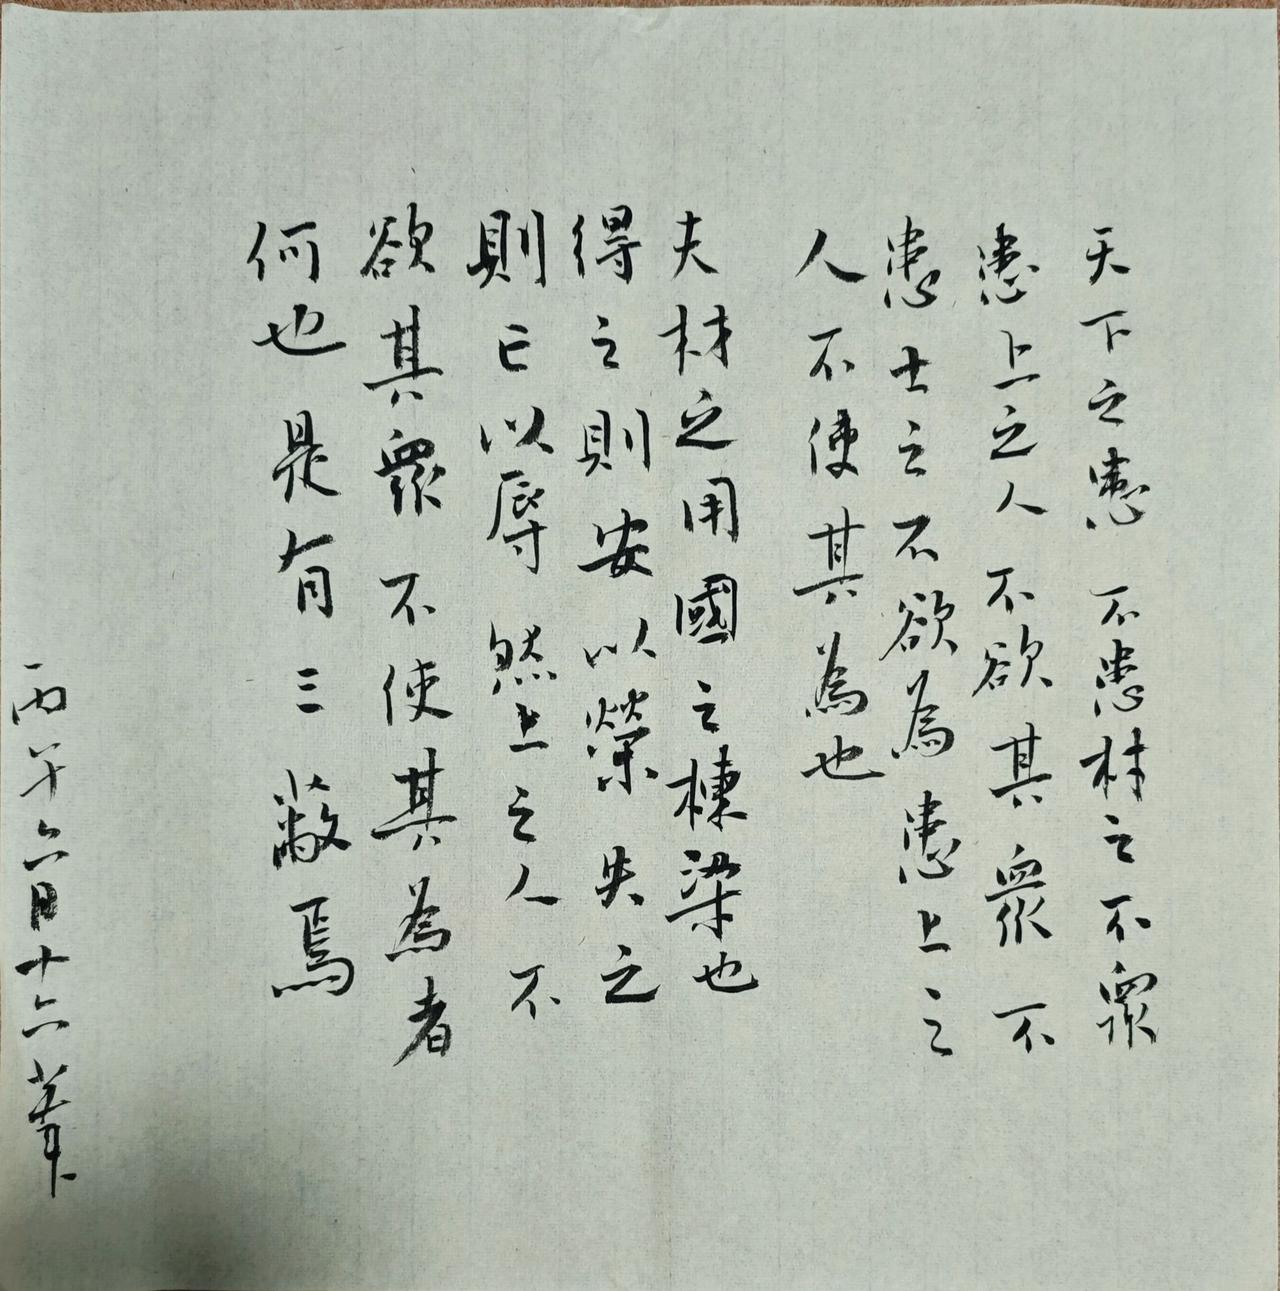 天下之患不患材之不衆
患上之人不欲其衆不
患士之不欲為患上之
人不使其為也
夫材之用國之棟梁也
得之則安以榮失之
則亡以辱然上之人不
欲其衆不使其為者
何也是有三蔽焉
丙午六月十六